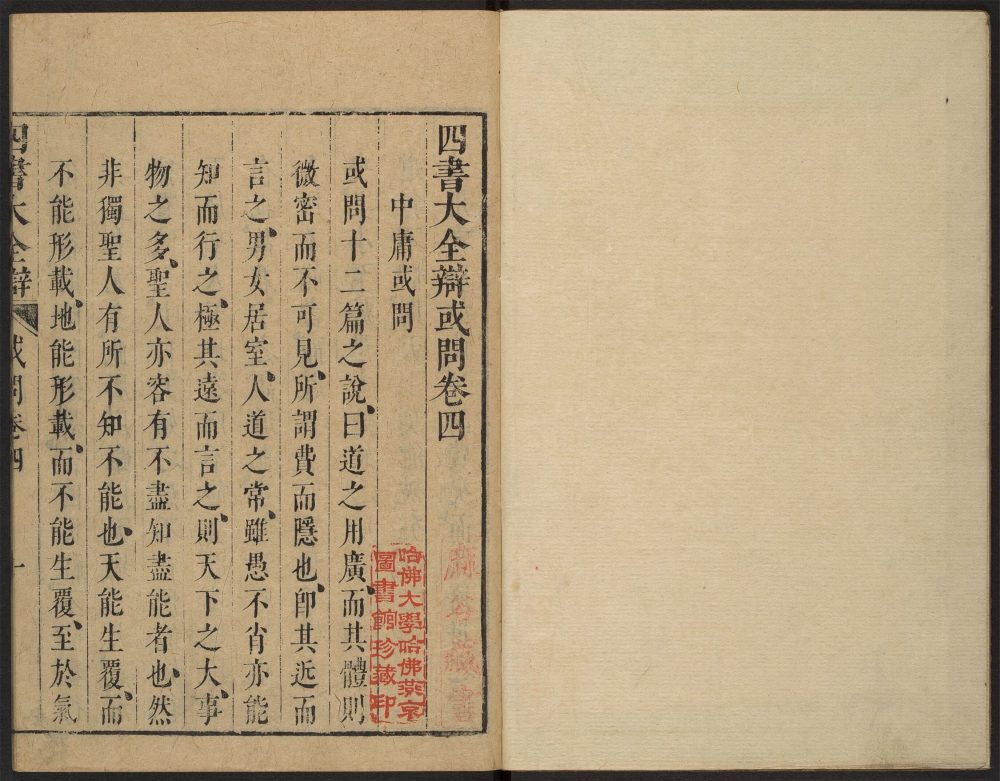 四書大全辯或問卷四
中庸或問
或問十二篇之說曰道之用廣而其體則
微密而不可見所謂費而隱也卽其近而
言之男女居室人道之常雖愚不肖亦能
知而行之極其遠而言之則天下之大事
物之多聖人亦容有不盡知盡能者也然
非獨聖人有所不知不能也天能生覆而
不能形載地能形載而不能生覆至於氣
四書大全辯 或問卷四 一
哈佛大學哈佛燕京
圖書館珍藏印